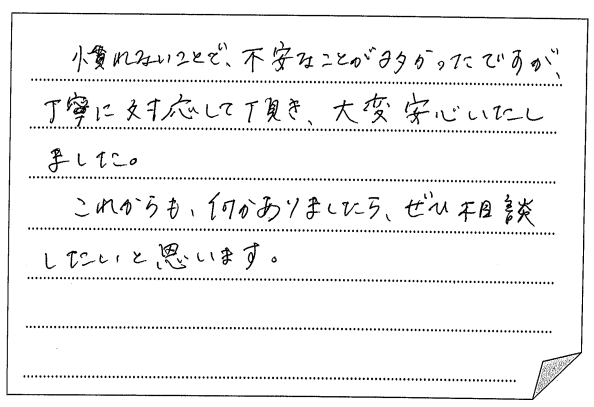 慣れないことで、不安なことが多かったですが、
丁寧に対応して頂き、大変安心いたし
ました。
これからも、何かありましたら、ぜひ相談
したいと思います。